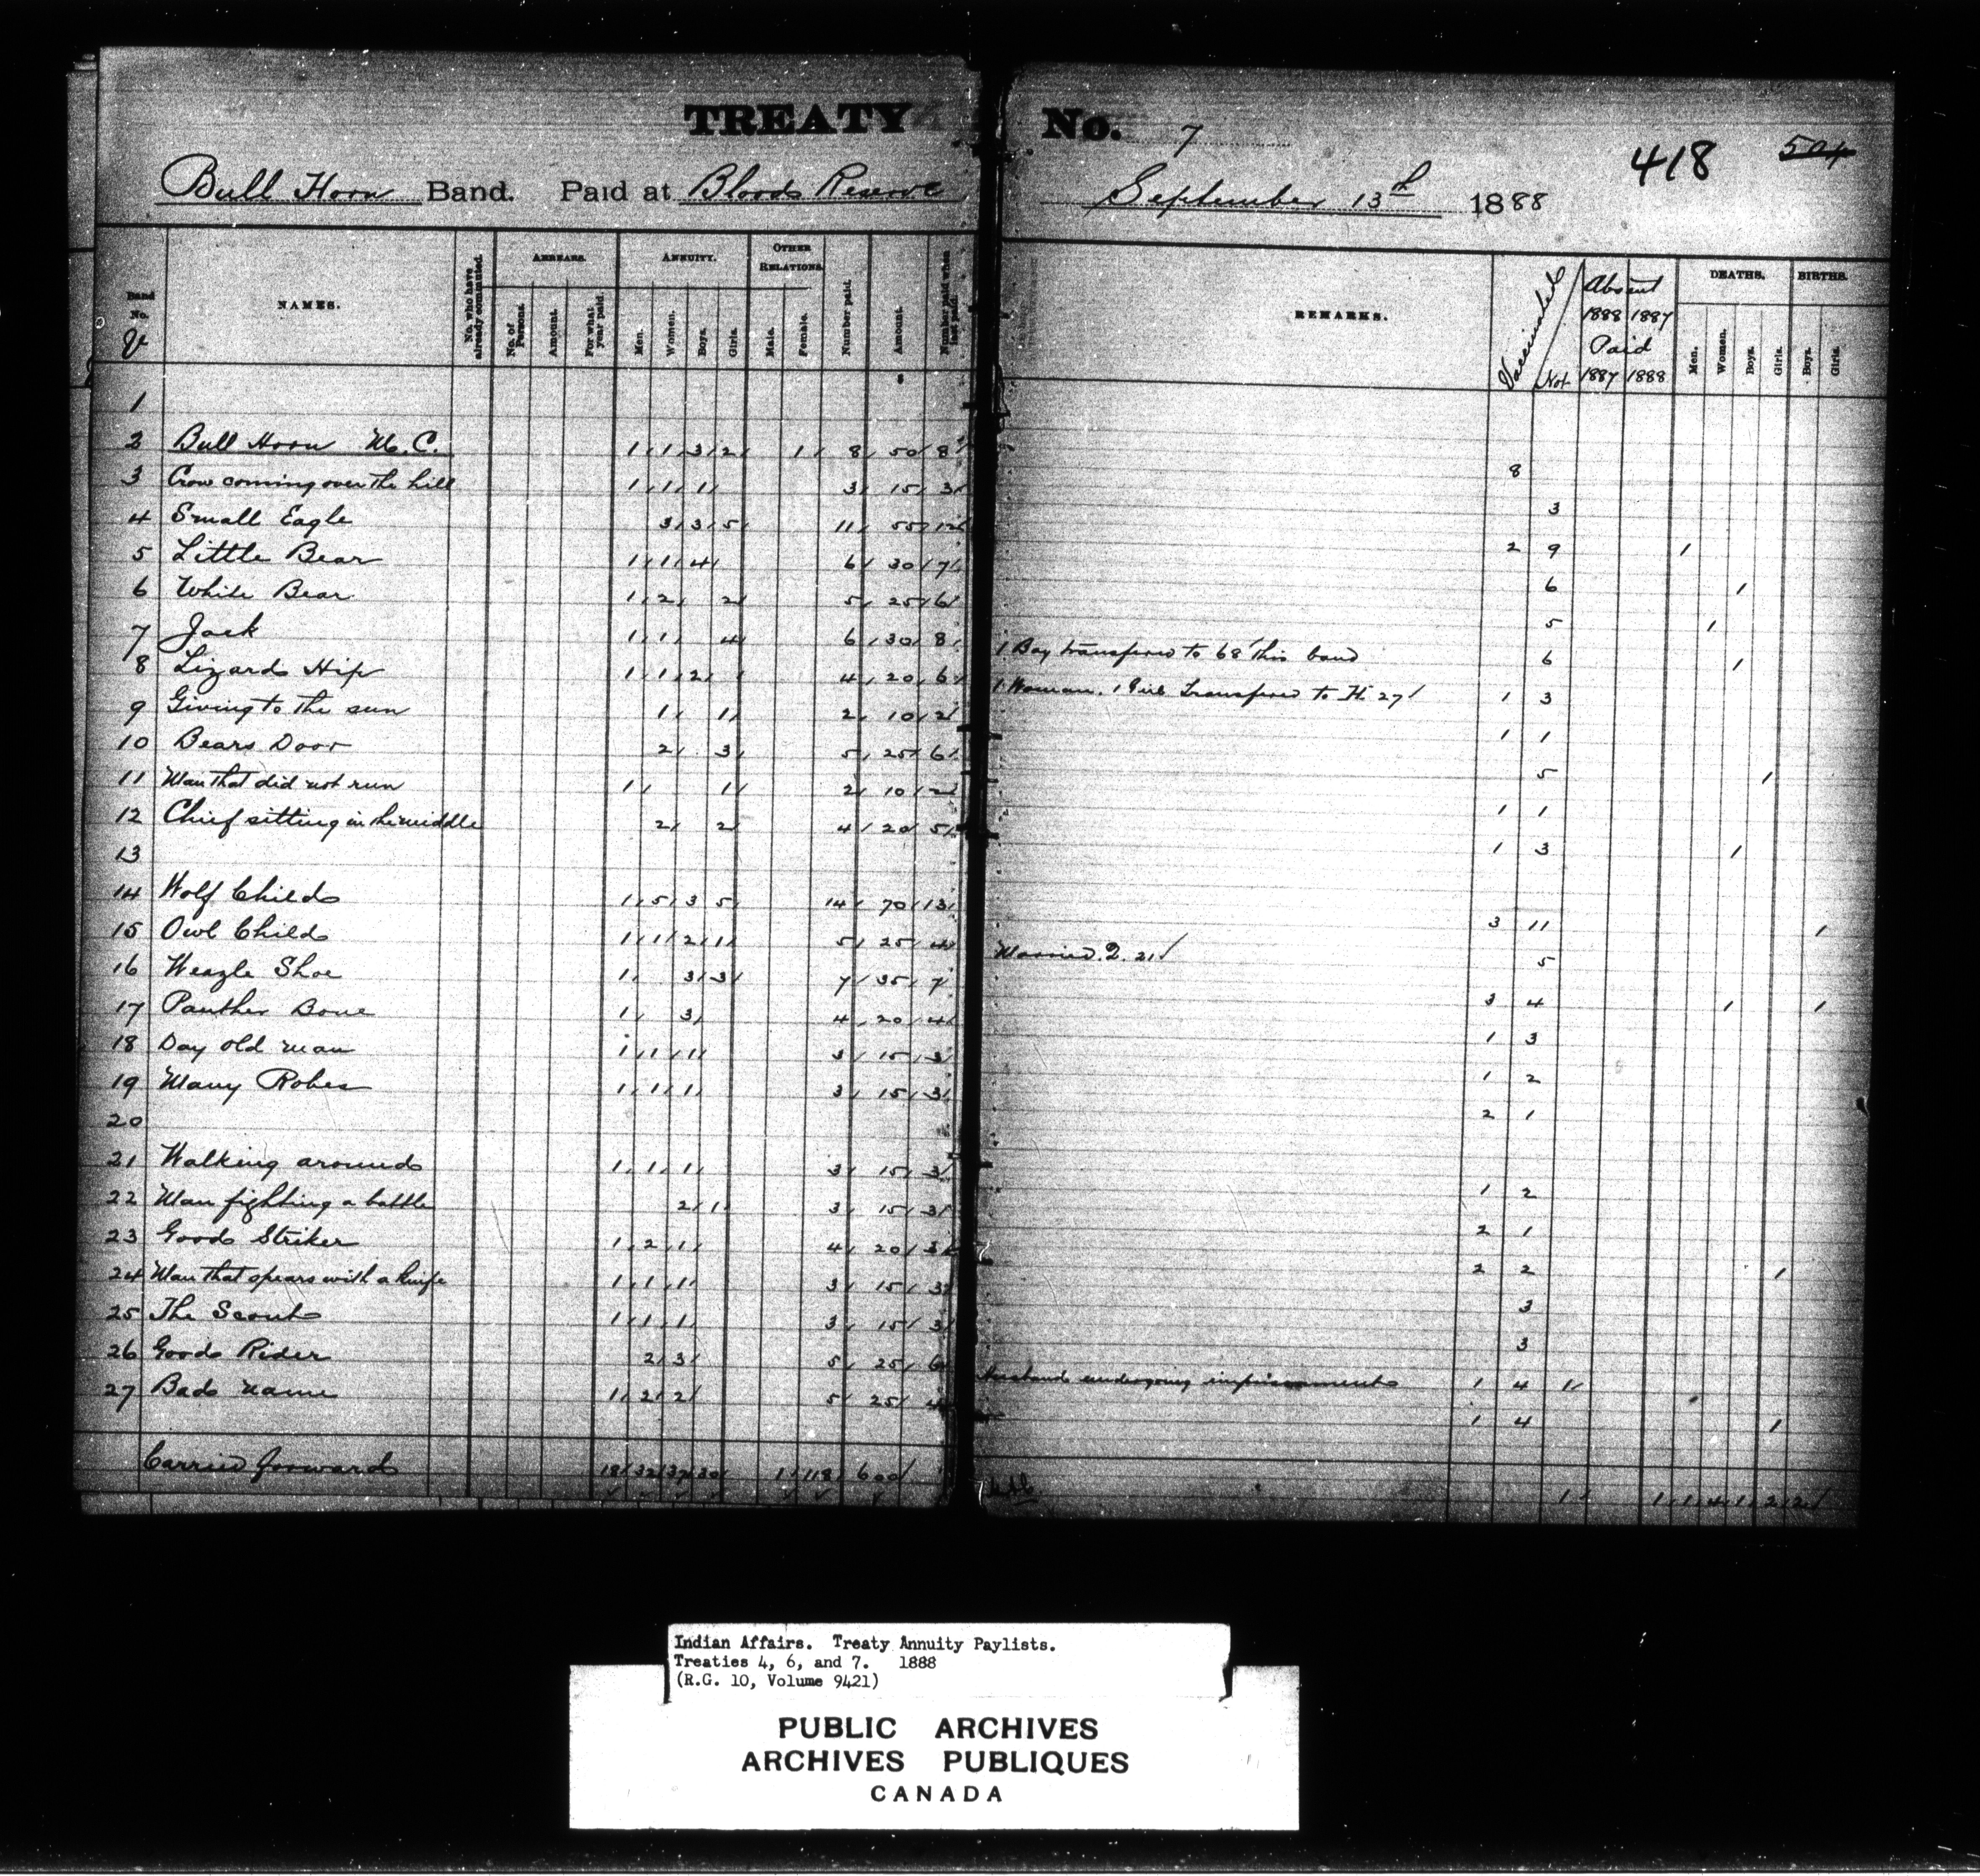 TREATY No. 7
418 504
Bull Horn Band. Paid at Bloods Reserve September 13th 1888
Band No. V
NAMES.
No. who have already commuted.
ARREARS.
No. of Persons. Amount. For what year paid.
ANNUITY.
Men. Women. Boys. Girls.
OTHER RELATIONS.
Male. Female.
Number paid. Amount. Number paid when last paid.
REMARKS.
Vaccinated / Not
Absent 1888 1887
Paid 1887 1888
DEATHS.
Men. Women. Boys. Girls.
BIRTHS.
Boys. Girls.
1
2 Bull Horn M.C. 1 1 3 2 1 8 50 8 8
3 Crow coming over the hill 1 1 1 3 15 3 3
4 Small Eagle 3 3 5 11 55 12 2 9 1
5 Little Bear 1 1 4 6 30 7 6 1
6 White Bear 1 2 2 5 25 6 5 1
7 Jack 1 1 4 6 30 8 1 Boy transferred to 68 this band 6 1
8 Lizards Hip 1 1 2 4 20 6 1 Woman. 1 Girl Transferred to H 27 1 3
9 Giving to the sun 1 1 2 10 2 1 1
10 Bears Door 2 3 5 25 6 5 1
11 Man that did not run 1 1 2 10 2 1 1
12 Chief sitting in the middle 2 2 4 20 5 1 3 1
13
14 Wolf Child 1 5 3 5 14 70 13 3 11 1
15 Owl Child 1 1 2 1 5 25 4 Married Q. 21 5
16 Weazle Shoe 1 3 3 7 35 7 3 4 1 1
17 Panther Bone 1 3 4 20 4 1 3
18 Day old man 1 1 1 3 15 3 1 2
19 Many Robes 1 1 1 3 15 3 2 1
20
21 Walking around 1 1 1 3 15 3 1 2
22 Man fighting a battle 2 1 3 15 3 2 1
23 Good Striker 1 2 1 4 20 3 2 2 1
24 Man that spears with a knife 1 1 1 3 15 3 3
25 The Scout 1 1 1 3 15 3 3
26 Good Rider 2 3 5 25 6 Husband undergoing imprisonment 1 4 1
27 Bad name 1 2 2 5 25 4 1 4 1
Carried forward 18 32 37 30 1 118 600 1 1 1 4 1 2 2
Indian Affairs. Treaty Annuity Paylists.
Treaties 4, 6, and 7. 1888
(R.G. 10, Volume 9421)
PUBLIC ARCHIVES
ARCHIVES PUBLIQUES
CANADA